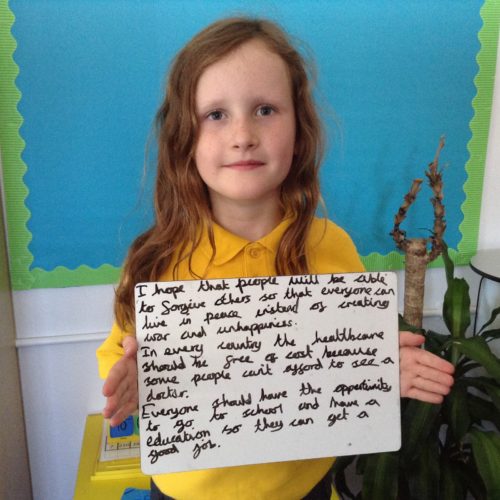 I hope that people will be able
to forgive others so that everyone can
live in peace instead of creating
war and unhappiness.
In every country the healthcare
should be free of cost because
some people can't afford to see a
doctor.
Everyone should have the opportunity
to go to school and have a
education so they can get a
good job.